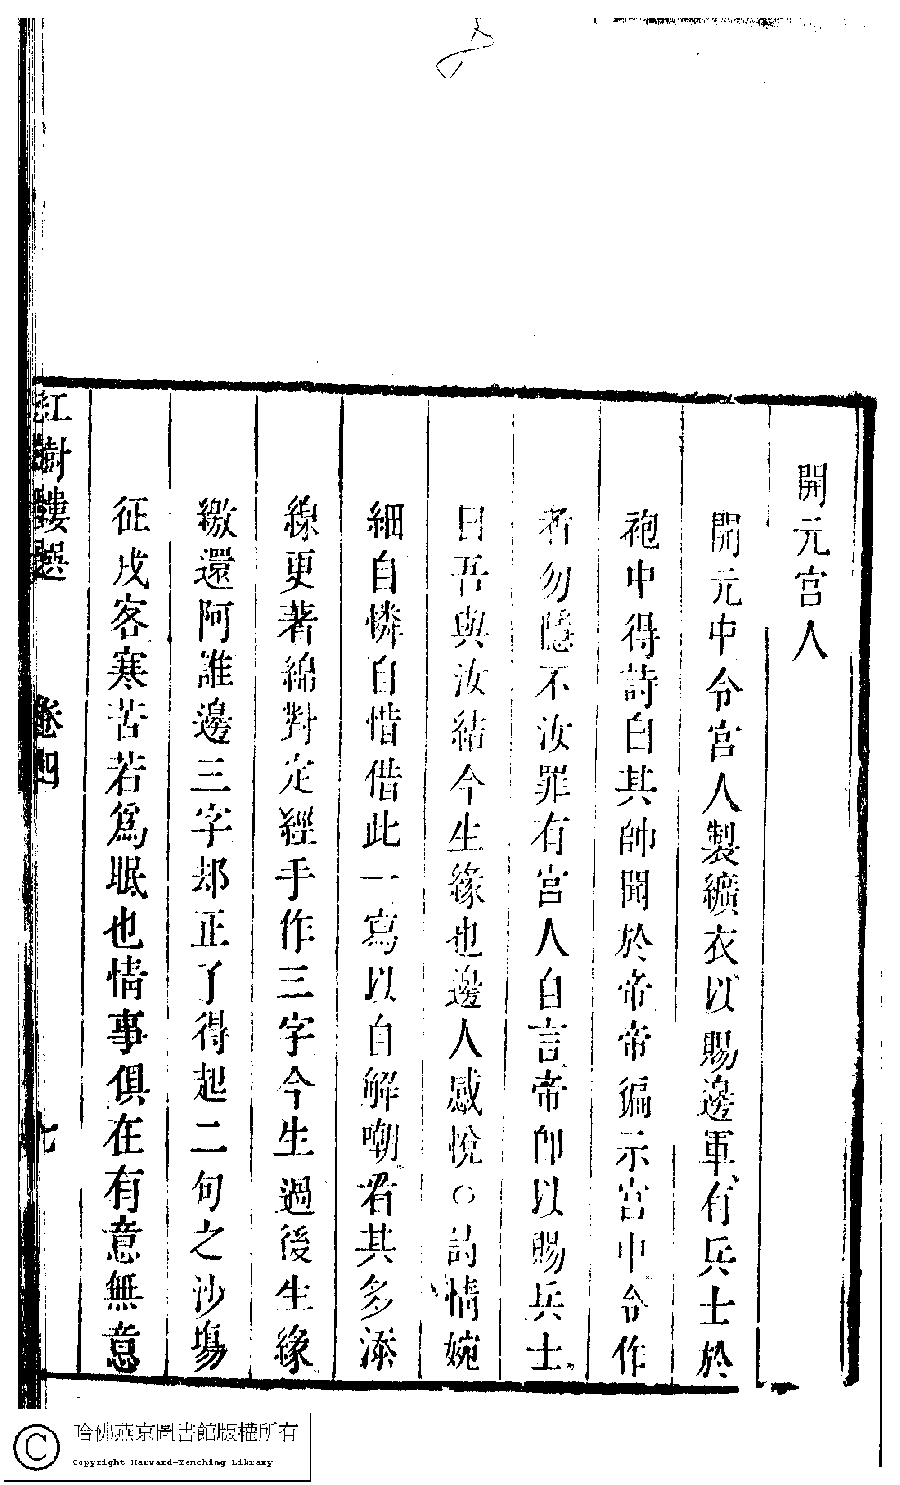 開元宮人
開元中令宮人製纊衣以賜邊軍有兵士於
袍中得詩白其帥聞於帝帝徧示宮中令作
者勿隱不汝罪有宮人自言帝卽以賜兵士
曰吾與汝結今生緣也邊人感悅〇詩情婉
細自憐自惜借此一寫以自解嘲看其多添
線更著綿對定經手作三字今生過後生緣
繳還阿誰邊三字却正了得起二句之沙塲
征戍客寒苦若爲眠也情事俱在有意無意
紅樹樓選 卷四 七
哈佛燕京圖書館版權所有
Copyright Harvard-Yenching Library